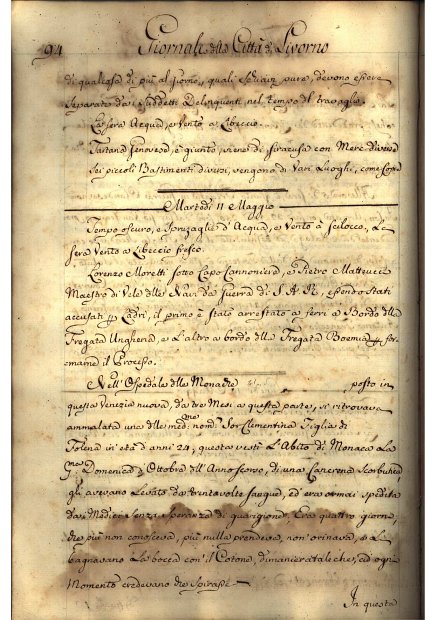 94 Giornali della Città di Livorno
di qualcosa di più al giorno, quali Schiavi pure, devono essere
separati da i suddetti Delinquenti nel tempo del travaglio.
La sera Acqua, e Vento a Libeccio.
Tartana Genovese, è giunta, viene di Siracusa con Merc. diverse
Sei piccoli Bastimenti diversi, vengono di Vari Luoghi, come sopra
Martedi 11 Maggio
Tempo oscuro, e Spruzaglie d'Acqua, e Vento à Scilocco, La
sera Vento a Libeccio fresco.
Lorenzo Moretti sotto Capo Cannoniere, e Pietro Matteucci
Maestro di Vele delle Navi da guerra di S. A. R., essendo stati
accusati Ladri, il primo è stato arrestato a ferri a Bordo della
Fregata Ungheria, e L'altro a bordo della Fregata Boemia for-
marne il Processo.
Nell'Ospedale delle Monache posto in
questa Venezia nuova, da tre Mesi a questa parte, si ritrovava
ammalata una delle med.me nom.a Suor Clementina Figlia di
in età d'anni 29, questa vestì L'Abito di Monaca La
Domenica d'Ottobre dell'Anno scorso, di una Cancrena Scorbutica,
gli avevano Levato da trenta volte sangue, ed era ormai spedita
da i Medici senza speranza di guarigione, Era quattro giorni,
che più non conosceva, più nulla prendeva, non orinava, e Le
bagnavano La bocca con'l Cotone, dimanieratale che, ed ogni
Momento credevano che Spirasse
In questa